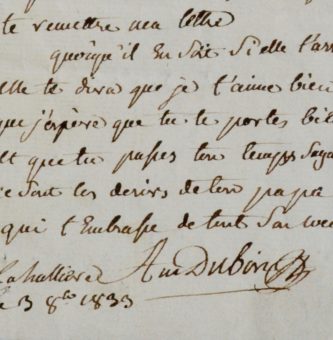 te remettre ma lettre
quoiqu'il En soit Si elle t'arr
elle te dira que je t'aime bien
que j'espère que tu te portes bie
Et que tu passes ton temps Sage
ce Sont les desirs de ton papa
qui t'Embrasse de tout Son coeu
Am Dubois
le 3 8bre 1833